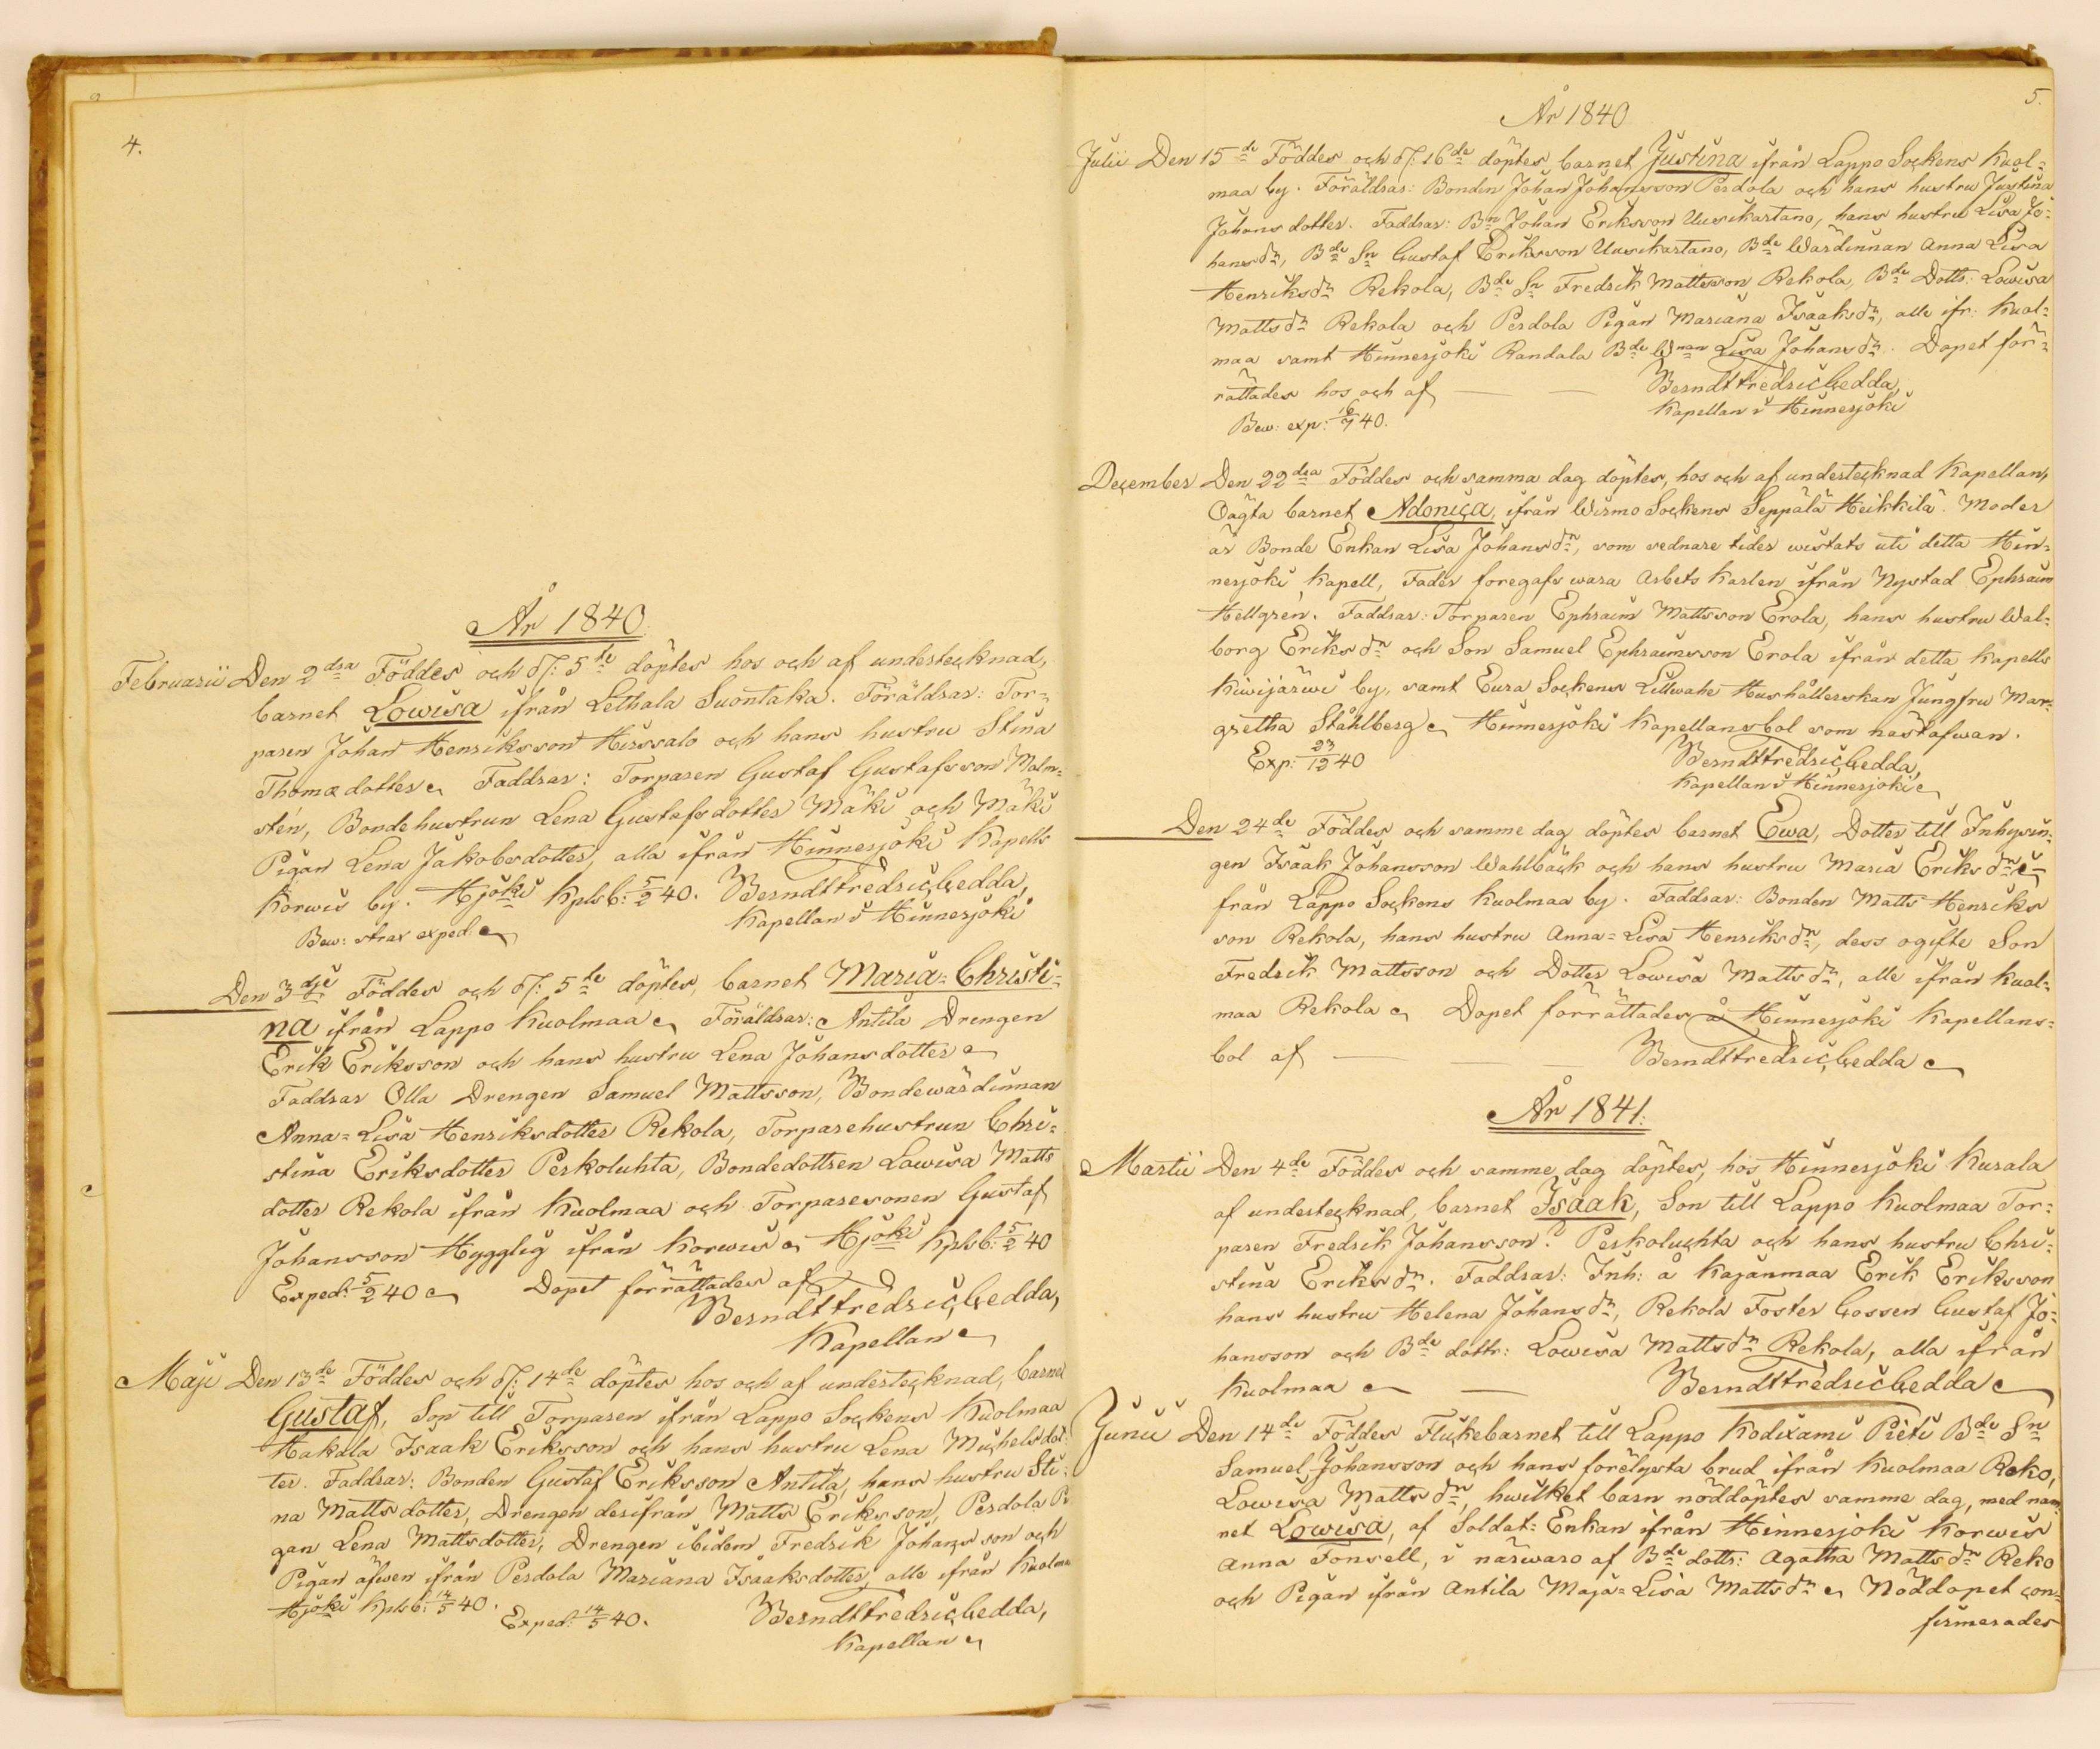 4.
År 1840.
Februarii Den 2dra Föddes och d/: 5te döptes hos och af undertecknad,
barnet Lowisa ifrån Lethala Suontaka. Föräldrar: Tor=
paren Johan Henriksson Hirssalo och hans hustru Stina
Thomædotter. Faddrar: Torparen Gustaf Gustafsson Malm=
stén, Bondehustrun Lena Gustafsdotter Mäki och Mäki
Pigan Lena Jakobsdotter, alla ifrån Hinnerjoki Kapells
Korwis by. Hjoki Kplsb: 5/2 40. Berndt Fredric Gedda,
Bew: strax exped.
Kapellan i Hinnerjoki
Den 3dje Föddes och d/: 5te döptes, barnet Maria=Christi=
na ifrån Lappo Kuolmaa. Föräldrar: Antila Drengen
Erik Eriksson och hans hustru Lena Johansdotter
Faddrar Olla Drengen Samuel Mattsson, Bondewärdinnan
Anna=Lisa Henriksdotter Rekola, Torparehustrun Chri=
stina Eriksdotter Perkoluhta, Bondedottren Lowisa Matts
dotter Rekola ifrån Kuolmaa och Torparesonen Gustaf
Johansson Hygglig ifrån Korwis. Hjoki Kplsb: 5/2 40
Exped: 5/2 40 Dopet förrättades af
Berndt Fredric Gedda,
Kapellan
Maji Den 13de Föddes och d/: 14de döptes hos och af undertecknad, barnet
Gustaf, Son till Torparen ifrån Lappo Sockens Kuolmaa
Hakala Isaak Eriksson och hans hustru Lena Michelsdot=
ter. Faddrar: Bonden Gustaf Eriksson Antila, hans hustru Sti=
na Mattsdotter, Drengen derifrån Matts Eriksson, Perdola Pi
gan Lena Mattsdotter, Drengen ibidem Fredrik Johansson och
Pigan äfwen ifrån Perdola Mariana Isaaksdotter, alle ifrån Kuolmaa
Hjoki Kplsb: 14/5 40.
Exped: 14/5 40. Berndt Fredric Gedda,
Kapellan
5.
År 1840
Julii Den 15de Föddes och d/: 16de döptes barnet Justina ifrån Lappo Sockens Kuol=
maa by. Föräldrar: Bonden Johan Johansson Perdola och hans hustru Justina
Johansdotter. Faddrar: Bn Johan Eriksson Uusikartano, hans hustru Lisa Jo=
hansdr, Bde Sn Gustaf Eriksson Uusikartano, Bde Wärdinnan Anna Lisa
Henriksdr Rekola, Bde Sn Fredrik Mattsson Rekola, Bde Dottr: Lowisa
Mattsdr Rekola och Perdola Pigan Mariana Isaaksdr, alle ifr: Kuol=
maa samt Hinnerjoki Randala Bde Wnan Lisa Johansdr. Dopet för=
rättades hos och af — — Berndt Fredric Gedda,
Bew: exp: 16/7 40.
Kapellan i Hinnerjoki
December Den 22dra Föddes och samma dag döptes, hos och af undertecknad Kapellan,
Oägta barnet Adonica, ifrån Wirmo Sockens Seppälä Heikkilä. Moder
är Bonde Enkan Lisa Johansdr, som sednare tider wistats uti detta Hin=
nerjoki Kapell, Fader foregafs wara Arbets Karlen ifrån Nystad Ephraim
Hellgrén. Faddrar: Torparen Ephraim Mattsson Erola, hans hustru Wal=
borg Eriksdr och Son Samuel Ephraimsson Erola ifrån detta Kapells
Kiwijärwi by, samt Eura Sockens Hushållerskan Jungfru Mar=
gretha Ståhlberg. Hinnerjoki Kapellansbol som nästofwan.
Exp: 23/12 40
Berndt Fredric Gedda,
Kapellan i Hinnerjoki
Den 24de Föddes och samme dag döptes barnet Ewa, Dotter till Inhysin=
gen Isaak Johansson Wahlbäck och hans hustru Maria Eriksdr i=
från Lappo Sockens Kuolmaa by. Faddrar: Bonden Matts Henriks
son Rekola, hans hustru Anna=Lisa Henriksdr, dess ogifte Son
Fredrik Mattsson och Dotter Lowisa Mattsdr, alle ifrån Kuol=
maa Rekola. Dopet förrättades å Hinnerjoki Kapellans=
bol af — — — Berndt Fredric Gedda
År 1841.
Martii Den 4de Föddes och samme dag döptes, hos Hinnerjoki Kurala
af undertecknad, barnet Isaak, Son till Lappo Kuolmaa Tor=
paren Fredrik Johansson? Perkoluchta och hans hustru Chri=
stina Eriksdr. Faddrar: Inh: å Kajanmaa Erik Eriksson
hans hustru Helena Johansdr, Rekola Foster Gossen Gustaf Jo=
hansson och Bde dottr: Lowisa Mattsdr Rekola, alla ifrån
Kuolmaa — Berndt Fredric Gedda
Junii Den 14de Föddes Flickebarnet till Lappo Kodixami Pieti Bde Sn
Samuel Johansson och hans förelysta brud ifrån Kuolmaa Reko,
Lowisa Mattsdr, hwilket barn nöddöptes samme dag, med nam=
net Lowisa, af Soldat=Enkan ifrån Hinnerjoki Korwis
Anna Fonsell, i närwaro af Bde dottr: Agatha Mattsdr Reko
och Pigan ifrån Antila Maja=Lisa Mattsdr. Nöddopet con=
firmerades